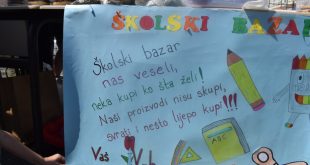 ŠKOLSKI BAZA
Školski bazar
nas veseli,
neka kupi ko šta želi!
Naši proizvodi nisu skupi,
svrati i nešto lijepo kupi!!!
Vaš
ABC